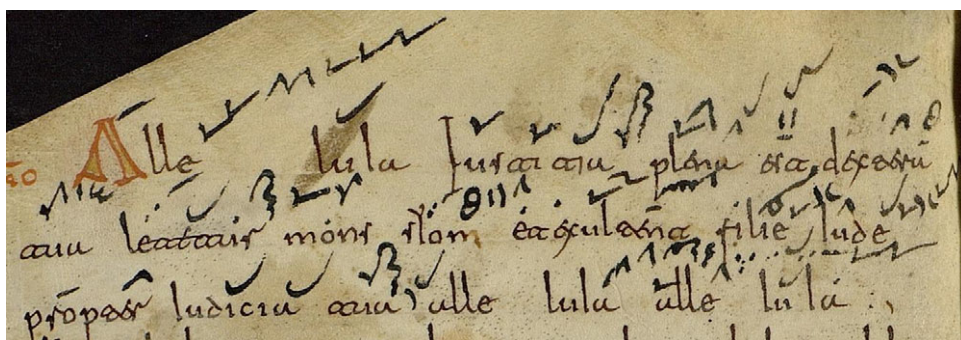 Alle luia Iustitia plena est dextera
tua letatur mons sion et exultent filie iude
propter iudicia tua alle luia alle luia